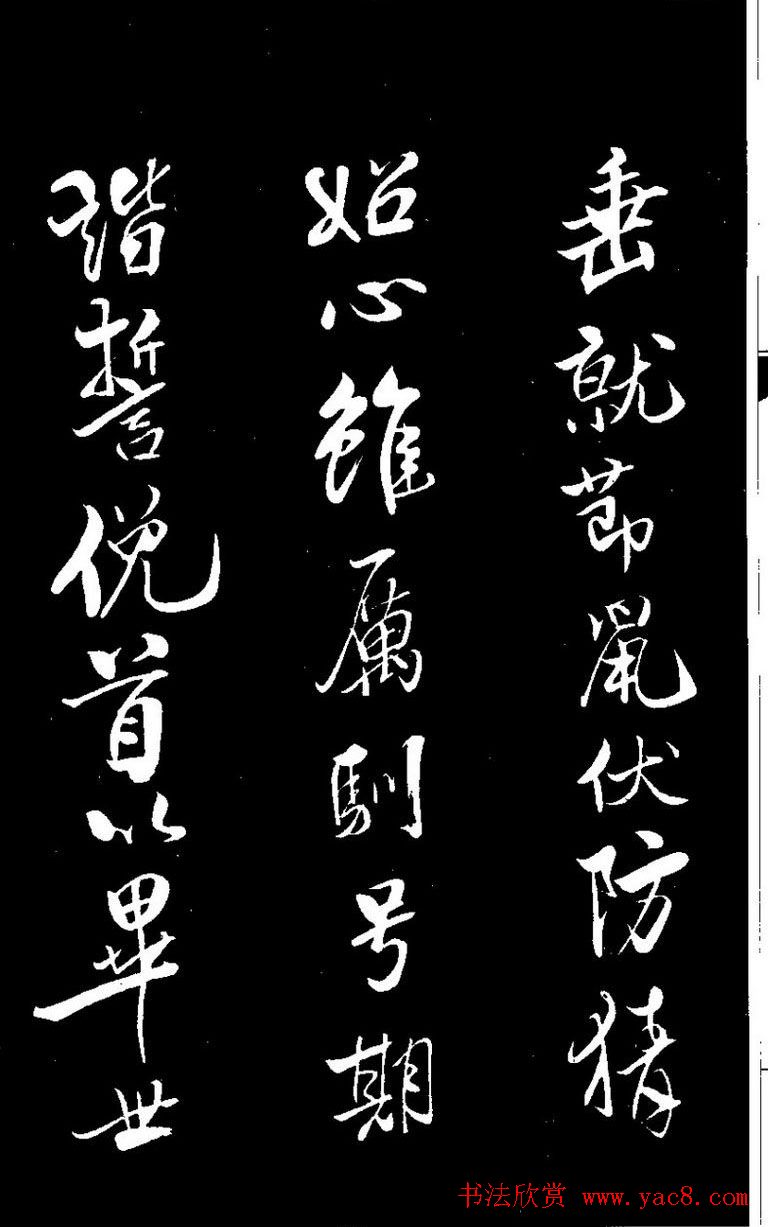 垂就節鼠伏防猜
妬心雖厲馴号期
諧誓俛首以畢世
书法欣赏 www.yac8.com